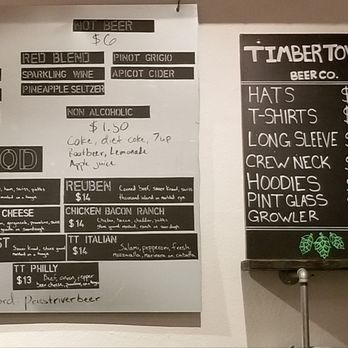 NOT BEER
$6
RED BLEND PINOT GRIGIO
SPARKLING WINE APICOT CIDER
PINEAPPLE SELTZER
NON ALCOHOLIC
$1.50
Coke, diet coke, 7up
Rootbeer, Lemonade
Apple juice
OD
REUBEN
$14
Corned beef, sauer kraut, swiss
thousand island on marbled rye
CHEESE
CHICKEN BACON RANCH
$14
ST
TT ITALIAN
$14
Salami, pepperoni, fresh
mozzarella, marinara on ciabatta
TT PHILLY
$13
Beef, onion, pepper
beer cheese,
TIMBERTOW
BEER CO.
HATS $
T-SHIRTS
LONG SLEEVE
CREW NECK
HOODIES
PINT GLASS
GROWLER